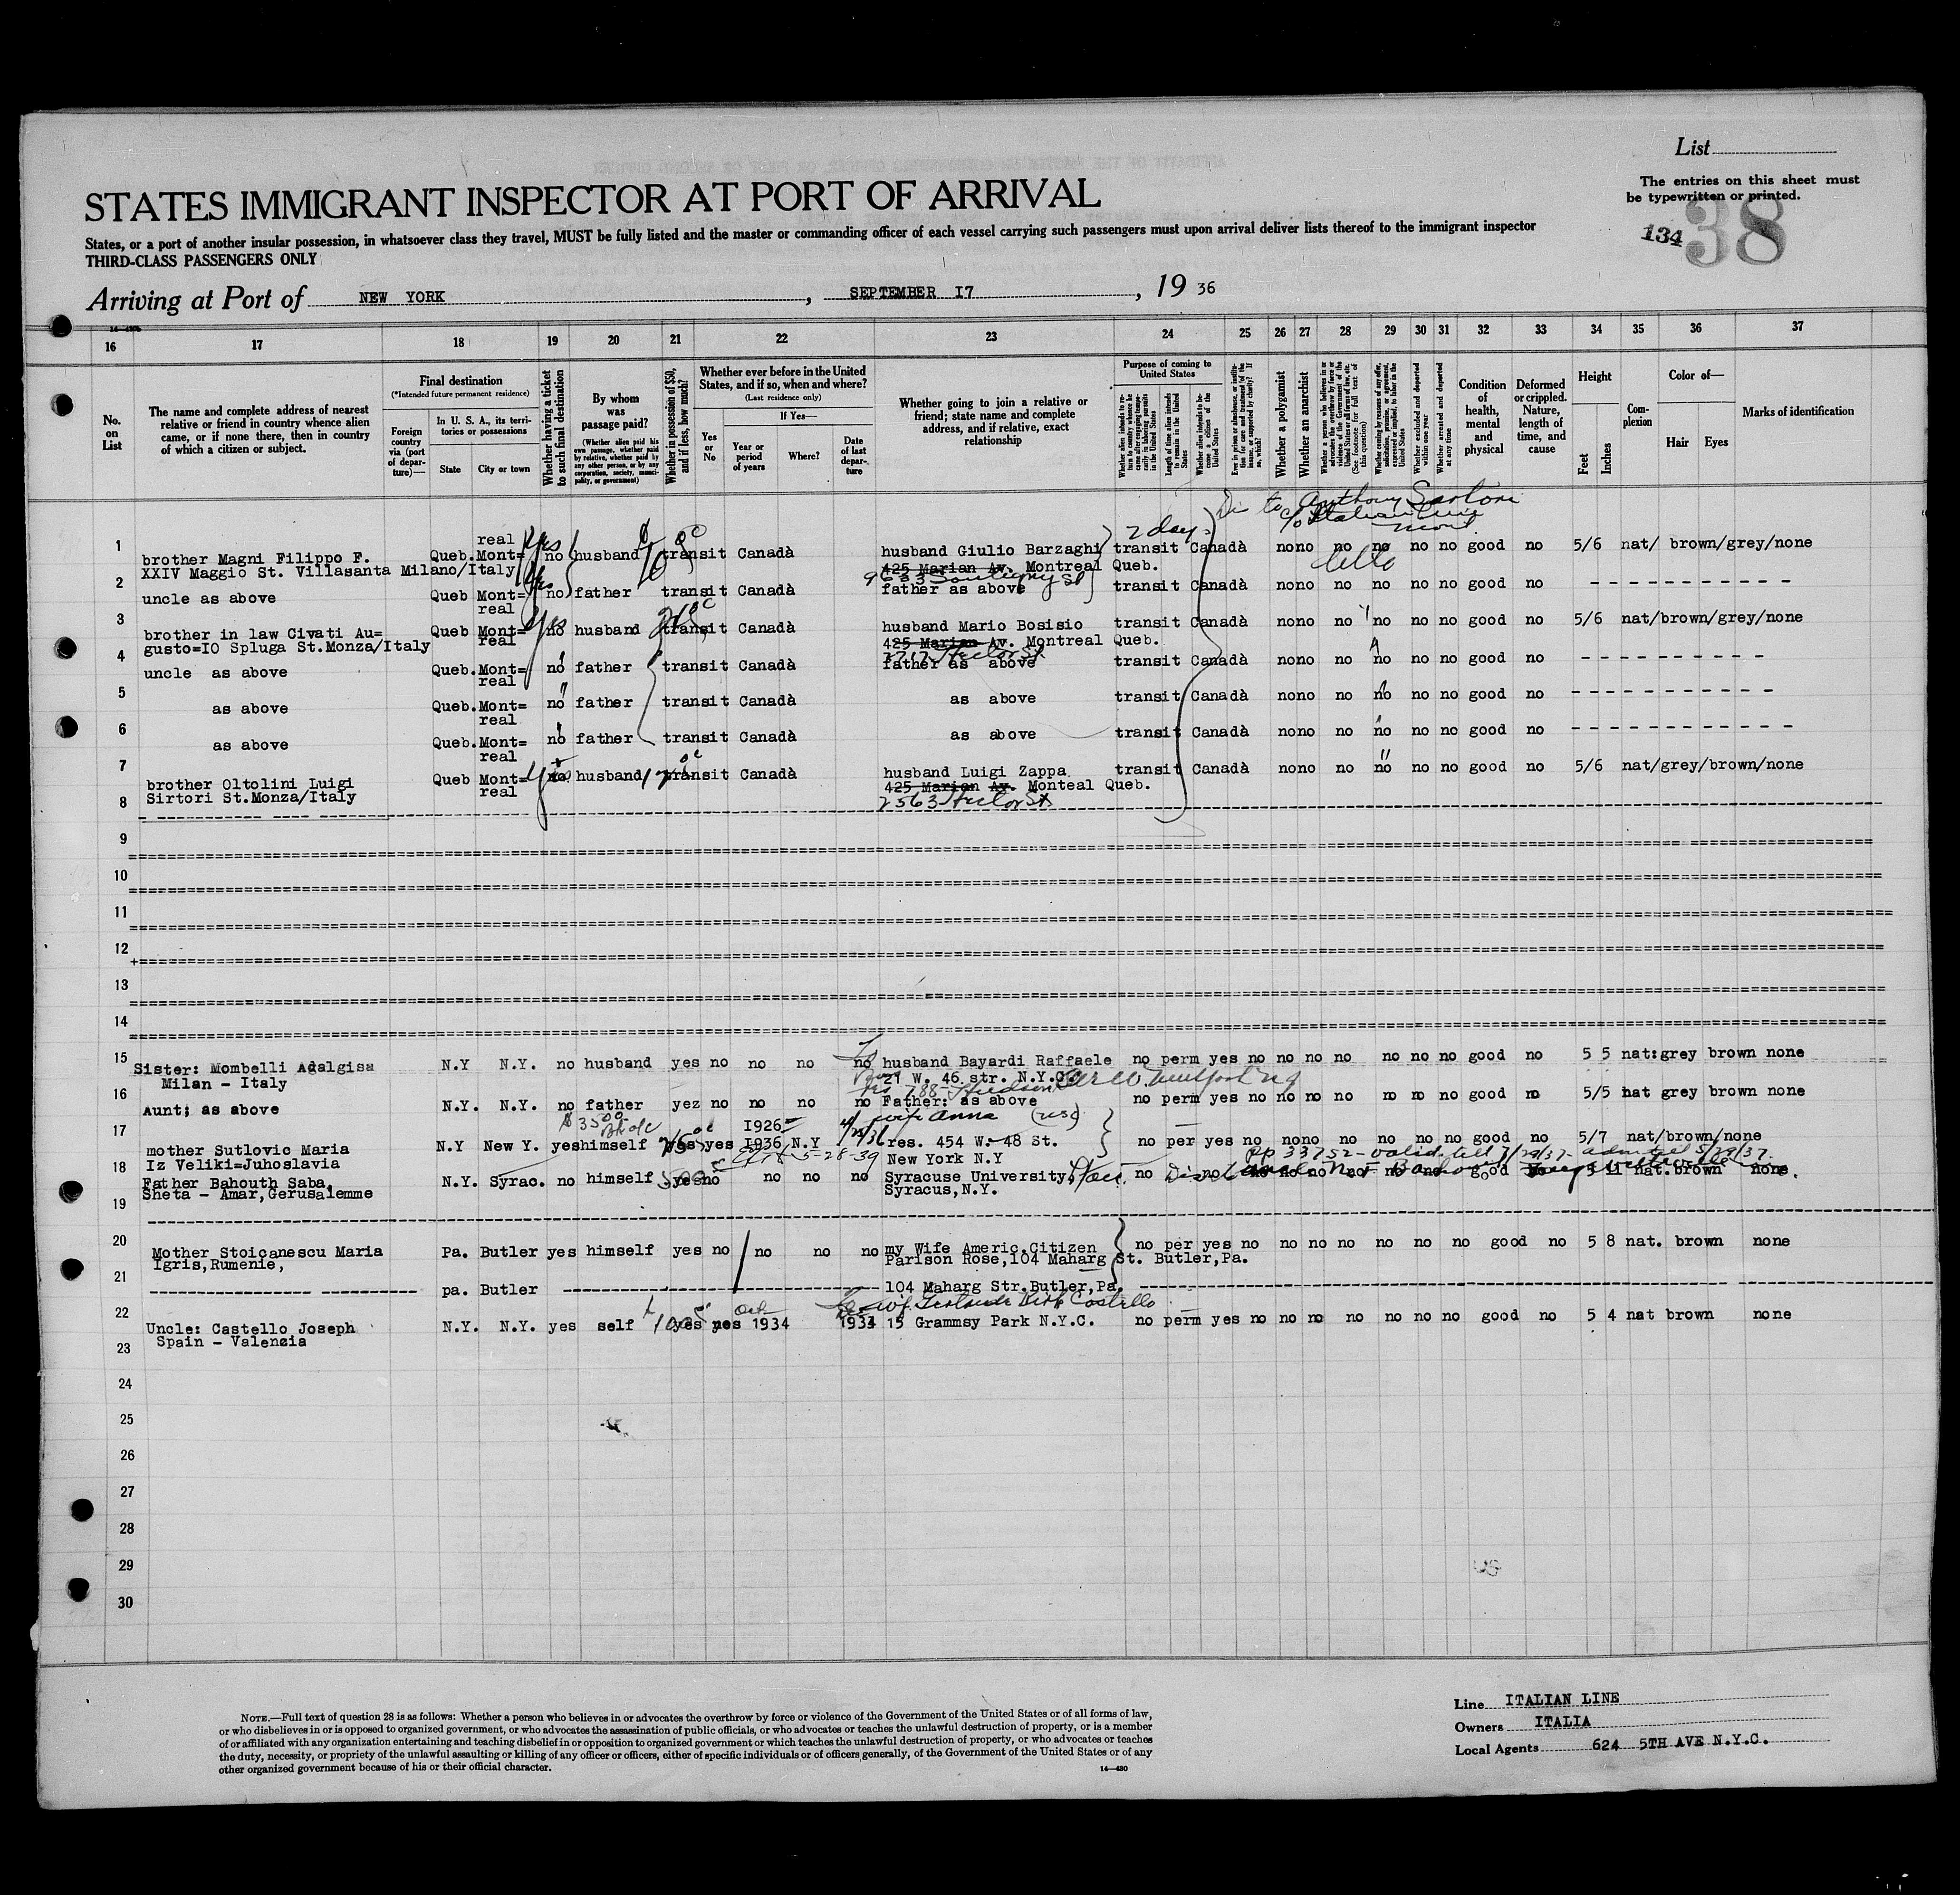 List
The entries on this sheet must
be typewritten or printed.
STATES IMMIGRANT INSPECTOR AT PORT OF ARRIVAL
134 38
States, or a port of another insular possession, in whatsoever class they travel, MUST be fully listed and the master or commanding officer of each vessel carrying such passengers must upon arrival deliver lists thereof to the immigrant inspector
THIRD-CLASS PASSENGERS ONLY
Arriving at Port of NEW YORK, SEPTEMBER I7, 19 36
16 17 18 19 20 21 22 23 24 25 26 27 28 29 30 31 32 33 34 35 36 37
No. on List
The name and complete address of nearest relative or friend in country whence alien came, or if none there, then in country of which a citizen or subject.
Final destination
(*Intended future permanent residence)
Foreign country via (port of departure)—
In U. S. A., its territories or possessions
State
City or town
Whether having a ticket to such final destination
By whom was passage paid?
(Whether alien paid his own passage, whether paid by relative, whether paid by any other person, or by any corporation, society, municipality, or government)
Whether in possession of $50, and if less, how much?
Whether ever before in the United States, and if so, when and where?
(Last residence only)
Yes or No
If Yes—
Year or period of years
Where?
Date of last departure
Whether going to join a relative or friend; state name and complete address, and if relative, exact relationship
Purpose of coming to United States
Length of time alien intends to remain in the United States
Whether alien intends to become a citizen of the United States
Whether a polygamist
Whether an anarchist
(See footnote for full text of this question)
Whether excluded and deported within one year
Whether arrested and deported at any time
Condition of health, mental and physical
Deformed or crippled. Nature, length of time, and cause
Height
Feet
Inches
Complexion
Color of—
Hair
Eyes
Marks of identification
to Anthony Sartori
c/o Italian Line
2 days
real
1 brother Magni Filippo F. Queb. Mont= yes no husband transit Canadà husband Giulio Barzaghi transit Canadà nono no no no no good no 5/6 nat/ brown/grey/none
XXIV Maggio St. Villasanta Milano/Italy 425 Marian Av. Montreal Queb.
2 uncle as above Queb Mont= yes no father transit Canadà father as above transit Canadà nono no no no no good no - - - - - - - - - - -
real
3 brother in law Civati Au= Queb Mont= yes no husband transit Canadà husband Mario Bosisio transit Canadà nono no no no no good no 5/6 nat/brown/grey/none
gusto=IO Spluga St.Monza/Italy real 425 Marian Av. Montreal Queb.
4 uncle as above Queb. Mont= no father transit Canadà father as above transit Canadà nono no no no no good no - - - - - - - - - - -
real
5 as above Queb. Mont= no father transit Canadà as above transit Canadà nono no no no no good no - - - - - - - - - - -
real
6 as above Queb. Mont= no father transit Canadà as above transit Canadà nono no no no no good no - - - - - - - - - - -
real
7 brother Oltolini Luigi Queb Mont= yes no husband transit Canadà husband Luigi Zappa transit Canadà nono no no no no good no 5/6 nat/grey/brown/none
Sirtori St.Monza/Italy real 425 Marian Av. Monteal Queb.
8 2563
9
10
11
12
13
14
15 Sister: Mombelli Adalgisa N.Y N.Y. no husband yes no no no no husband Bayardi Raffaele no perm yes no no no no no no no good no 5 5 nat:grey brown none
Milan - Italy 27 W. 46 str. N.Y.C.
16 Aunt: as above N.Y. N.Y. no father yez no no no no Father: as above no perm yes no no no no no no no good no 5/5 nat grey brown none
17 I926 wife Anna
mother Sutlovic Maria N.Y New Y. yes himself yes yes I936 N.Y res. 454 W. 48 St. no per yes no nono no no no no good no 5/7 nat/brown/none
Iz Veliki=Juhoslavia 5-28-39 New York N.Y
18 Father Bahouth Saba, N.Y. Syrac. no himself yes no no no no Syracuse University, no no no no no no no no no good 5 11 nat. brown none.
Sheta - Amar,Gerusalemme Syracus,N.Y.
19
20 Mother Stoicanescu Maria Pa. Butler yes himself yes no no no no my Wife Americ.Citizen no per yes no no no no no no no good no 5 8 nat. brown none
Igris,Rumenie, Parison Rose,104 Maharg St. Butler,Pa.
21 pa. Butler 104 Maharg Str.Butler,Pa.
Oct wf. Gertrude Costello
22 Uncle: Castello Joseph N.Y. N.Y. yes self yes yes 1934 1934 15 Grammsy Park N.Y.C. no perm yes no no no no no no no good no 5 4 nat brown none
Spain - Valenzia
23
24
25
26
27
28
29
30
NOTE.—Full text of question 28 is as follows: Whether a person who believes in or advocates the overthrow by force or violence of the Government of the United States or of all forms of law,
or who disbelieves in or is opposed to organized government, or who advocates the assassination of public officials, or who advocates or teaches the unlawful destruction of property, or is a member
of or affiliated with any organization entertaining and teaching disbelief in or opposition to organized government or which teaches the unlawful destruction of property, or who advocates or teaches
the duty, necessity, or propriety of the unlawful assaulting or killing of any officer or officers, either of specific individuals or of officers generally, of the Government of the United States or of any
other organized government because of his or their official character.
14—430
Line ITALIAN LINE
Owners ITALIA
Local Agents 624 5TH AVE N.Y.C.